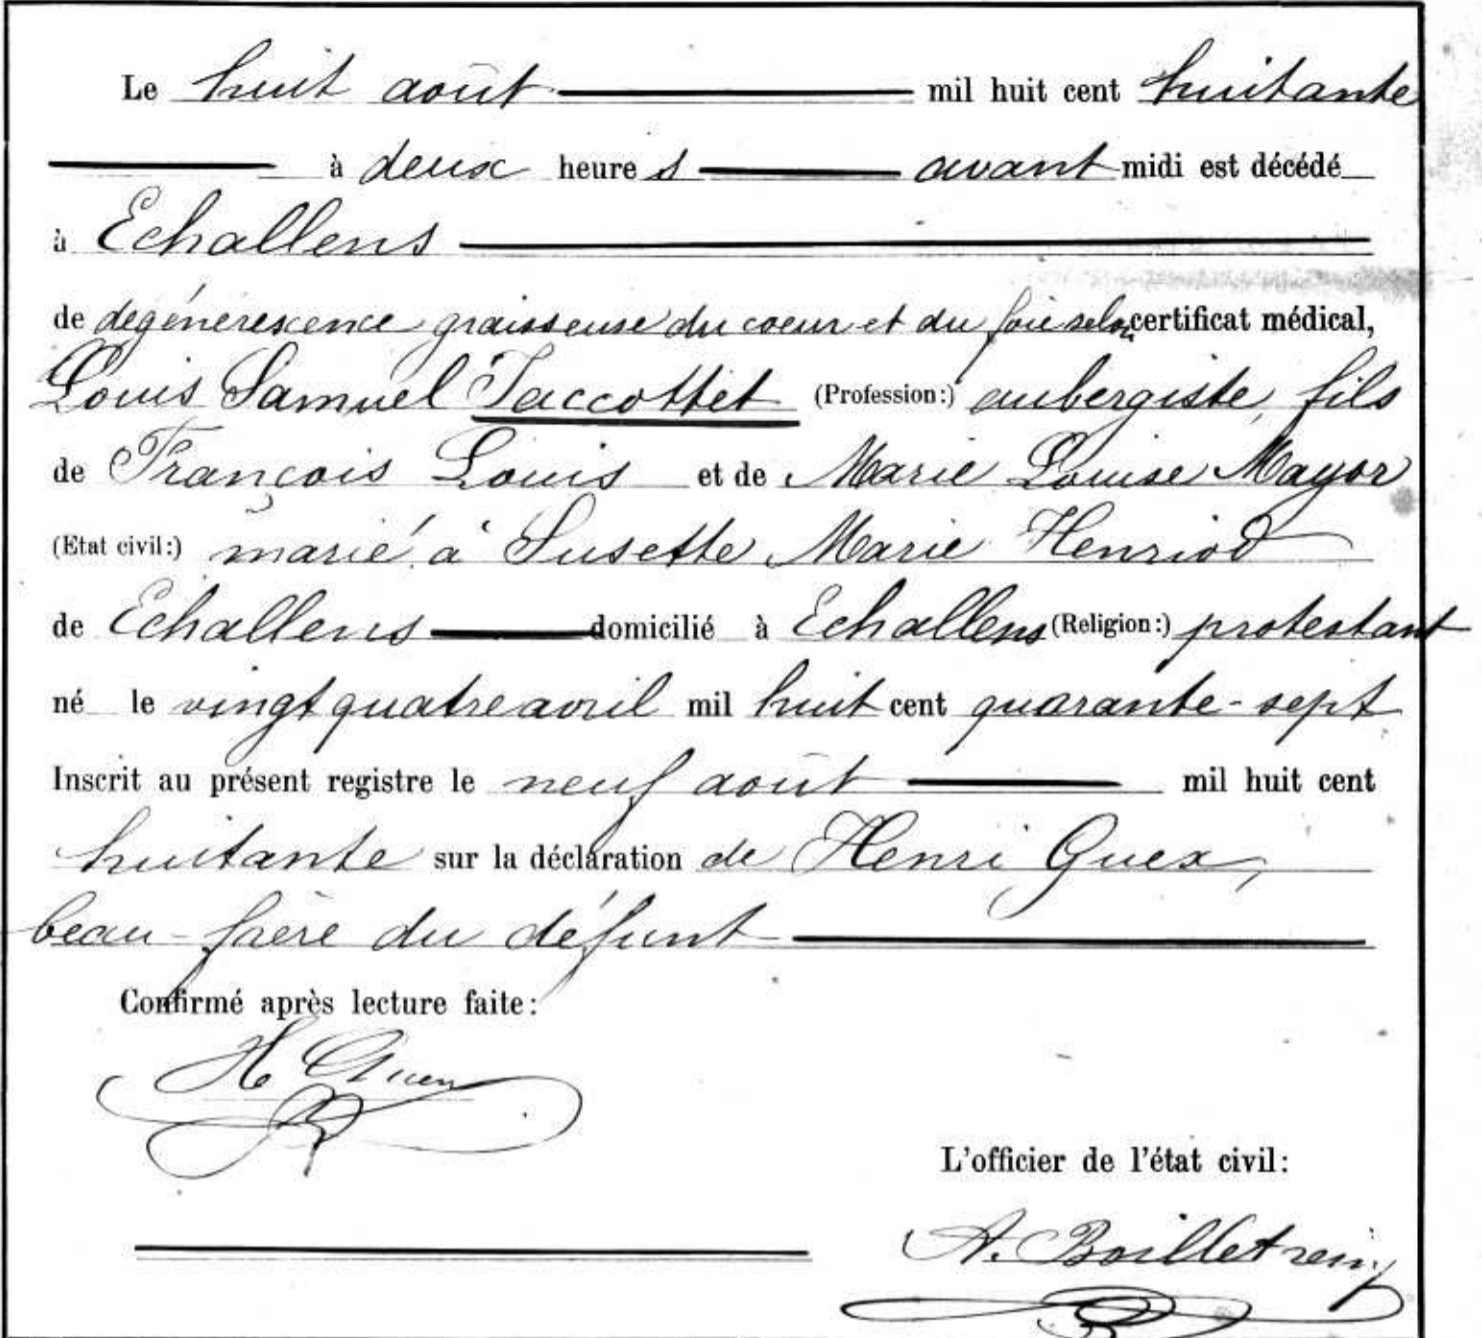 Le huit août mil huit cent huitante
à deux heures avant midi est décédé
à Echallens
de dégénérescence graisseuse du coeur et du foie selon certificat médical,
Louis Samuel Jaccottet (Profession:) aubergiste, fils
de François Louis et de Marie Louise Mayor
(Etat civil:) marié à Susette Marie Henriod
de Echallens domicilié à Echallens (Religion:) protestant
né le vingt quatre avril mil huit cent quarante-sept
Inscrit au présent registre le neuf août mil huit cent
huitante sur la déclaration de Henri Guex,
beau-frère du défunt
Confirmé après lecture faite:
H Guex
L'officier de l'état civil:
A.